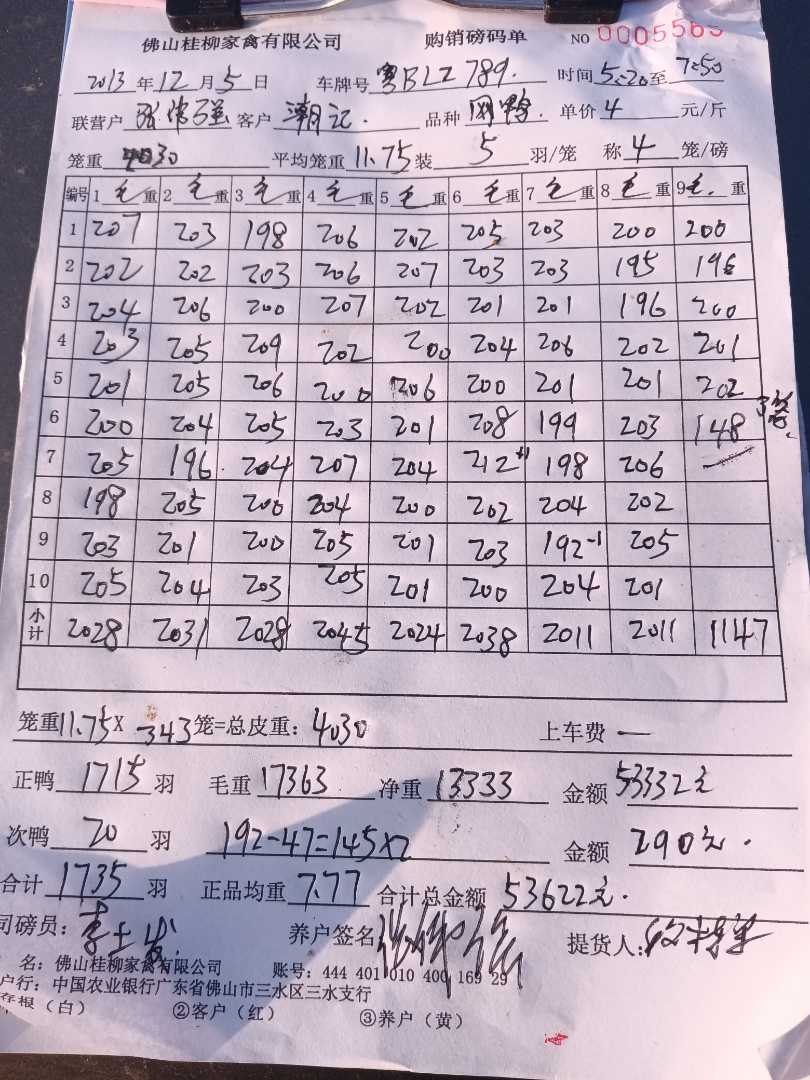 佛山桂柳家禽有限公司 购销磅码单 NO 0005565
2013年12月5日 车牌号粤BLZ789. 时间5:20至7:50
联营户 客户潮记. 品种 单价4元/斤
笼重4030 平均笼重11.75装5羽/笼 称4笼/磅
编号 1毛重 2毛重 3毛重 4毛重 5毛重 6毛重 7毛重 8毛重 9毛.重
1 207 203 198 206 202 205 203 200 200
2 202 202 203 206 207 203 203 195 196
3 204 206 200 207 202 201 201 196 200
4 203 205 209 202 200 204 206 202 201
5 201 205 206 200 206 200 201 201 202
6 200 204 205 203 201 208 199 203 148 3笼
7 205 196 204 207 204 212+1 198 206
8 198 205 200 204 200 202 204 202
9 203 201 200 205 201 203 192-1 205
10 205 204 203 205 201 200 204 201
小计 2028 2031 2028 2045 2024 2038 2011 2011 1147
笼重11.75X343笼=总皮重:4030 上车费 一
正鸭1715羽 毛重17363 净重13333 金额53332元
次鸭20羽 192-47=145×2 金额290元.
合计1735羽 正品均重7.77 合计总金额53622元.
司磅员: 养户签名 提货人:
名:佛山桂柳家禽有限公司 账号:444 401 010 400 169 29
户行:中国农业银行广东省佛山市三水区三水支行
存根(白) ②客户(红) ③养户(黄)